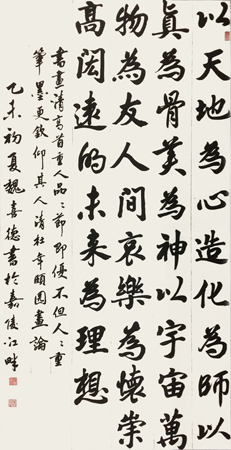 以天地為心造化為師以
眞為骨美為神以宇宙萬
物為友人間哀樂為懷崇
高闊遠的未來為理想
書畫清高首重人品〻節即優不但人〻重
筆墨更欽仰其人清松年頤園畫論
乙未初夏魏喜德書於嘉陵江畔